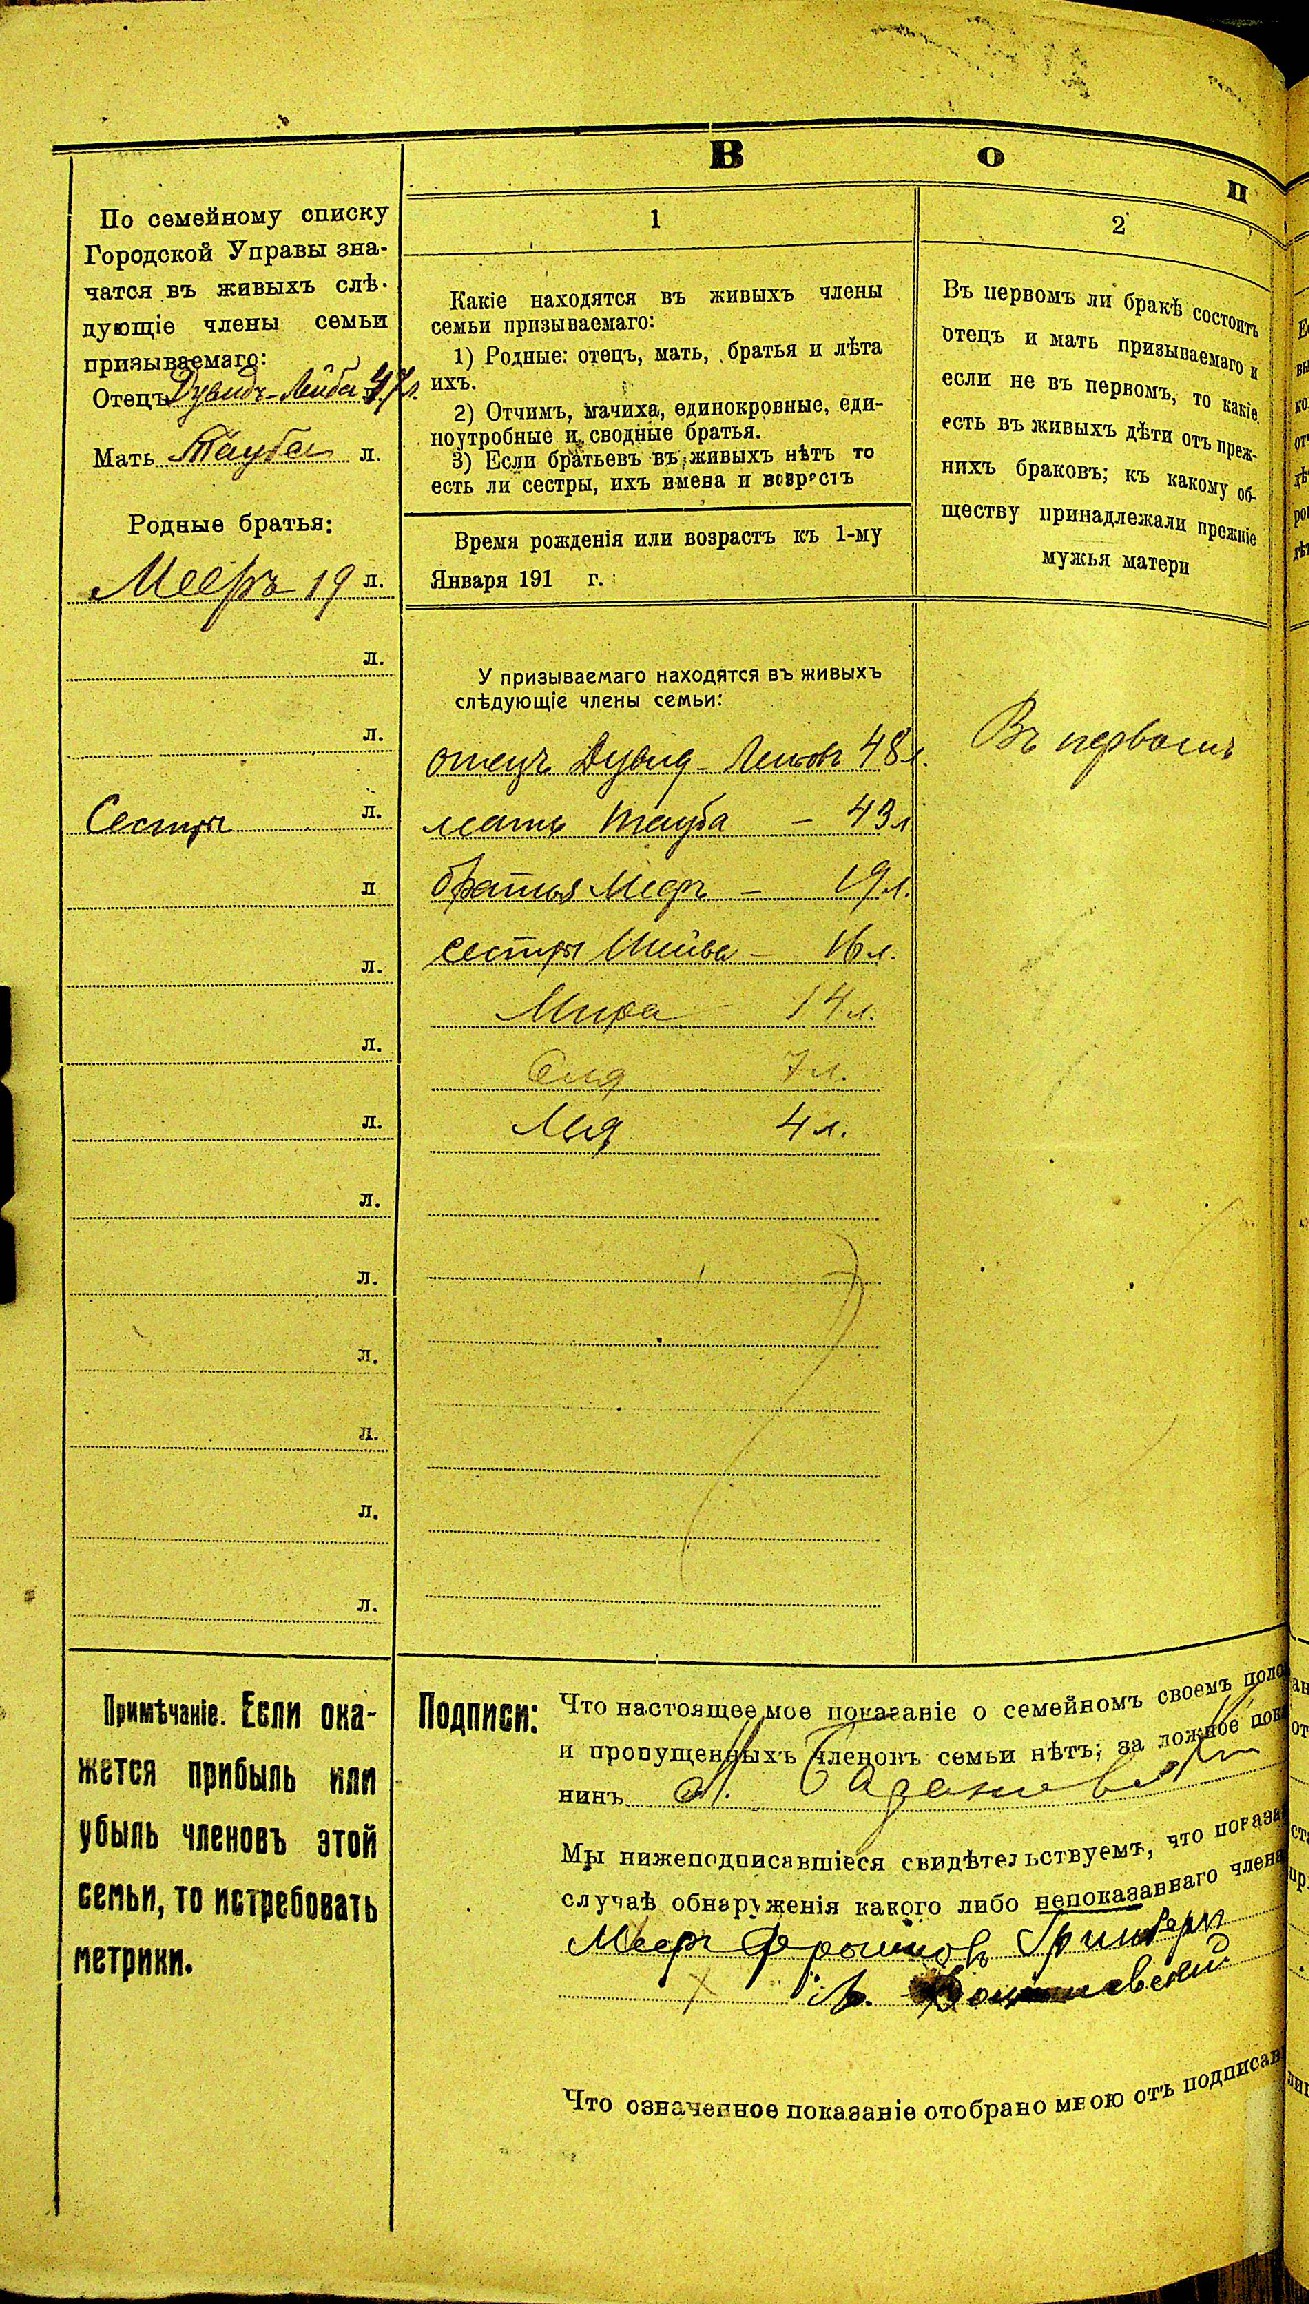 В о п
По семейному списку
Городской Управы зна-
чатся въ живыхъ слѣ-
дующіе члены семьи
призываемаго:
Отецъ Дувидъ-Лейба 47 л.
Мать Тауба л.
Родные братья:
Мееръ 19 л.
л.
л.
Сестры л.
л
л.
л.
л.
л.
л.
л.
л.
л.
л.
1
Какіе находятся въ живыхъ члены
семьи призываемаго:
1) Родные: отецъ, мать, братья и лѣта
ихъ.
2) Отчимъ, мачиха, единокровные, еди-
ноутробные и сводные братья.
3) Если братьевъ въ живыхъ нѣтъ то
есть ли сестры, ихъ имена и возрастъ
Время рожденія или возрастъ къ 1-му
Января 191 г.
У призываемаго находятся въ живыхъ
слѣдующіе члены семьи:
отецъ Дувид- 48 л.
мать Тауба - 43 л
братья Мееръ - 19 л.
сестры Шейва - 16 л.
Мира 14 л.
7 л.
Лея 4 л.
2
Въ первомъ ли бракѣ состоятъ
отецъ и мать призываемаго и
если не въ первомъ, то какіе
есть въ живыхъ дѣти отъ преж-
нихъ браковъ; къ какому об-
ществу принадлежали прежніе
мужья матери
Въ первомъ
Примѣчаніе. Если ока-
жется прибыль или
убыль членовъ этой
семьи, то истребовать
метрики.
Подписи:
Что настоящее мое показаніе о семейномъ своемъ поло
и пропущенныхъ членовъ семьи нѣтъ; за ложное пока
нинъ М.
Мы нижеподписавшіеся свидѣтельствуемъ, что показа
случаѣ обнаруженія какого либо непоказаннаго члена
Мееръ Фроимовъ Гринбергъ
Что означенное показаніе отобрано мною отъ подписав